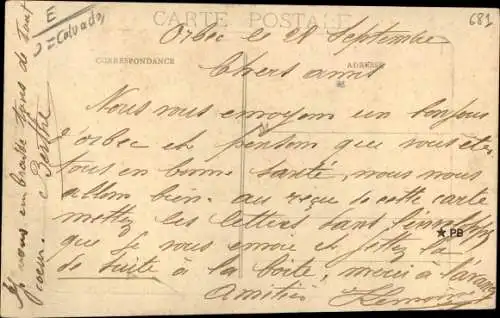 E
= Calvados
681
CARTE POSTALE
CORRESPONDANCE
ADRESSE
Orbec le 28 Septembre
Chers amis
Nous vous envoyons un bonjour
d'orbec et pensons que vous êtes
tous en bonne santé, nous nous
allons bien. au reçu de cette carte
mettez les lettres dans l'enveloppe
que je vous envoie et jettez la
de suite à la boîte, merci à l'avance
Amitiés
★PB
Je vous embrasse tous de tout
coeur. Berthe